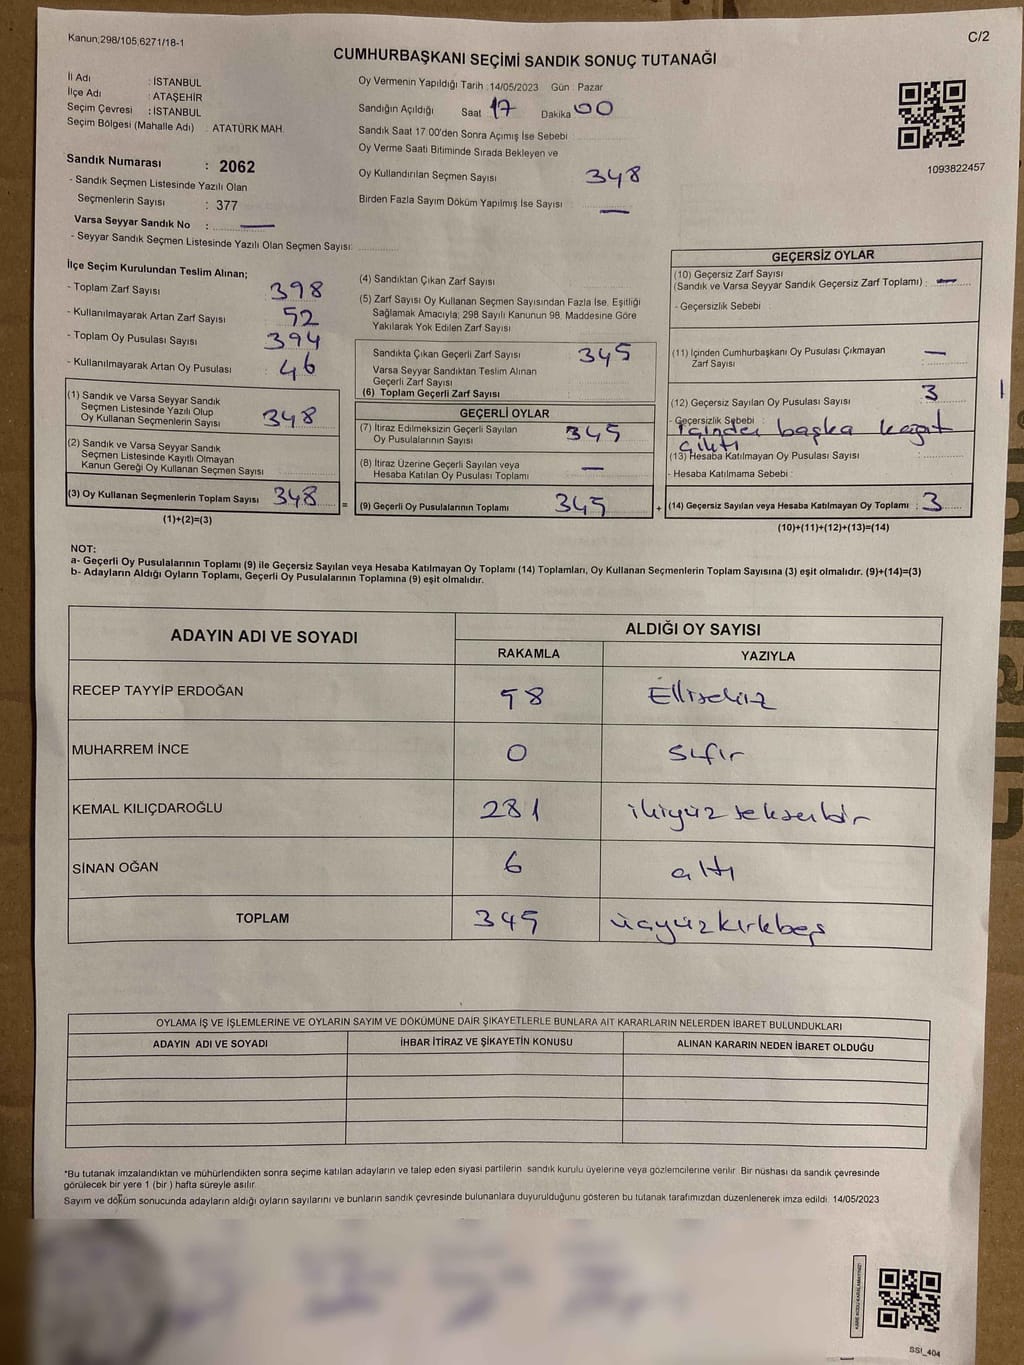 Kanun;298/105,6271/18-1
C/2
CUMHURBAŞKANI SEÇİMİ SANDIK SONUÇ TUTANAĞI
İl Adı : İSTANBUL
İlçe Adı : ATAŞEHİR
Seçim Çevresi : İSTANBUL
Seçim Bölgesi (Mahalle Adı) : ATATÜRK MAH.
Sandık Numarası : 2062
- Sandık Seçmen Listesinde Yazılı Olan
Seçmenlerin Sayısı : 377
Varsa Seyyar Sandık No : —
- Seyyar Sandık Seçmen Listesinde Yazılı Olan Seçmen Sayısı:
Oy Vermenin Yapıldığı Tarih : 14/05/2023 Gün : Pazar
Sandığın Açıldığı Saat 17 Dakika 00
Sandık Saat 17:00'den Sonra Açımış İse Sebebi
Oy Verme Saati Bitiminde Sırada Bekleyen ve
Oy Kullandırılan Seçmen Sayısı 348
Birden Fazla Sayım Döküm Yapılmış İse Sayısı : —
1093822457
İlçe Seçim Kurulundan Teslim Alınan;
- Toplam Zarf Sayısı 398
- Kullanılmayarak Artan Zarf Sayısı : 52
- Toplam Oy Pusulası Sayısı : 394
- Kullanılmayarak Artan Oy Pusulası : 46
(1) Sandık ve Varsa Seyyar Sandık
Seçmen Listesinde Yazılı Olup
Oy Kullanan Seçmenlerin Sayısı 348
(2) Sandık ve Varsa Seyyar Sandık
Seçmen Listesinde Kayıtlı Olmayan
Kanun Gereği Oy Kullanan Seçmen Sayısı
(3) Oy Kullanan Seçmenlerin Toplam Sayısı 348 =
(1)+(2)=(3)
(4) Sandıktan Çıkan Zarf Sayısı
(5) Zarf Sayısı Oy Kullanan Seçmen Sayısından Fazla İse, Eşitliği
Sağlamak Amacıyla; 298 Sayılı Kanunun 98. Maddesine Göre
Yakılarak Yok Edilen Zarf Sayısı
Sandıkta Çıkan Geçerli Zarf Sayısı 345
Varsa Seyyar Sandıktan Teslim Alınan
Geçerli Zarf Sayısı
(6) Toplam Geçerli Zarf Sayısı
GEÇERLİ OYLAR
(7) İtiraz Edilmeksizin Geçerli Sayılan
Oy Pusulalarının Sayısı 345
(8) İtiraz Üzerine Geçerli Sayılan veya
Hesaba Katılan Oy Pusulası Toplamı —
(9) Geçerli Oy Pusulalarının Toplamı 345 +
GEÇERSİZ OYLAR
(10) Geçersiz Zarf Sayısı
(Sandık ve Varsa Seyyar Sandık Geçersiz Zarf Toplamı) : —
- Geçersizlik Sebebi
(11) İçinden Cumhurbaşkanı Oy Pusulası Çıkmayan
Zarf Sayısı —
(12) Geçersiz Sayılan Oy Pusulası Sayısı 3
- Geçersizlik Sebebi :
içinden başka kağat
çıktı
(13) Hesaba Katılmayan Oy Pusulası Sayısı
- Hesaba Katılmama Sebebi :
(14) Geçersiz Sayılan veya Hesaba Katılmayan Oy Toplamı : 3
(10)+(11)+(12)+(13)=(14)
NOT:
a- Geçerli Oy Pusulalarının Toplamı (9) ile Geçersiz Sayılan veya Hesaba Katılmayan Oy Toplamı (14) Toplamları, Oy Kullanan Seçmenlerin Toplam Sayısına (3) eşit olmalıdır. (9)+(14)=(3)
b- Adayların Aldığı Oyların Toplamı, Geçerli Oy Pusulalarının Toplamına (9) eşit olmalıdır.
ADAYIN ADI VE SOYADI ALDIĞI OY SAYISI
RAKAMLA YAZIYLA
RECEP TAYYİP ERDOĞAN 58 Ellisekiz
MUHARREM İNCE 0 sıfır
KEMAL KILIÇDAROĞLU 281 ikiyüz seksenbir
SİNAN OĞAN 6 altı
TOPLAM 345 üçyüzkırkbeş
OYLAMA İŞ VE İŞLEMLERİNE VE OYLARIN SAYIM VE DÖKÜMÜNE DAİR ŞİKAYETLERLE BUNLARA AİT KARARLARIN NELERDEN İBARET BULUNDUKLARI
ADAYIN ADI VE SOYADI İHBAR İTİRAZ VE ŞİKAYETİN KONUSU ALINAN KARARIN NEDEN İBARET OLDUĞU
*Bu tutanak imzalandıktan ve mühürlendikten sonra seçime katılan adayların ve talep eden siyasi partilerin sandık kurulu üyelerine veya gözlemcilerine verilir. Bir nüshası da sandık çevresinde
görülecek bir yere 1 (bir ) hafta süreyle asılır.
Sayım ve döküm sonucunda adayların aldığı oyların sayılarını ve bunların sandık çevresinde bulunanlara duyurulduğunu gösteren bu tutanak tarafımızdan düzenlenerek imza edildi. 14/05/2023
SSI_404